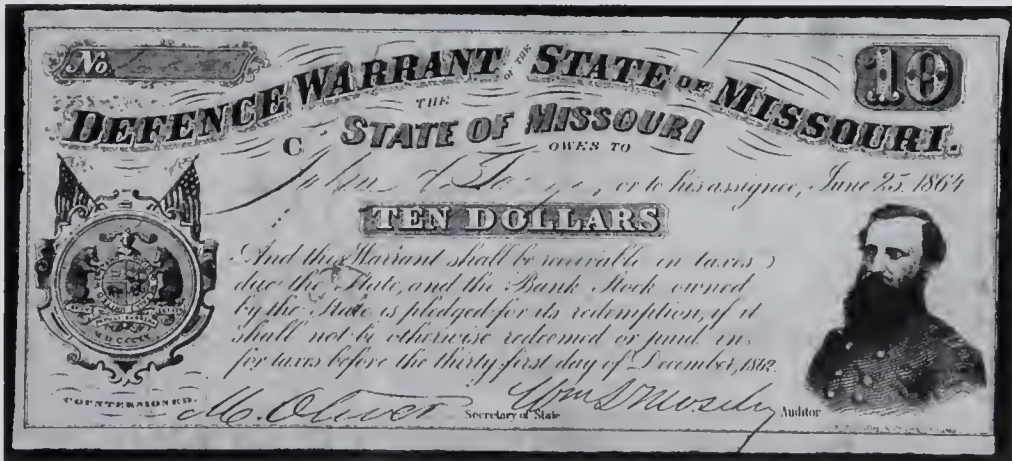 No.
10
DEFENCE WARRANT OF THE STATE OF MISSOURI.
THE
C STATE OF MISSOURI
OWES TO
John or to his assignee, June 25, 1864
TEN DOLLARS
And this Warrant shall be receivable in taxes
due the State, and the Bank Stock owned
by the State is pledged for its redemption, if it
shall not be otherwise redeemed or paid in
for taxes before the thirty first day of December, 1862
COUNTERSIGNED.
M. Oliver Secretary of State Wm S Mosely Auditor